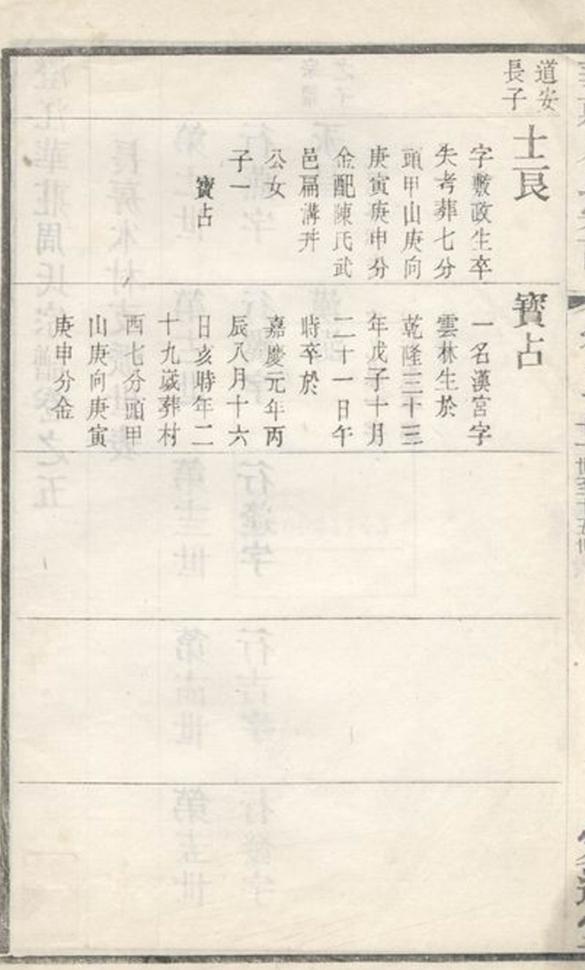 道安
長子
士良
字敷政生卒
失考葬七分
頭甲山庚向
庚寅庚申分
金配陳氏武
邑扁溝井
公女
子一
寶占
寶占
一名漢宮字
雲林生於
乾隆三十三
年戊子十月
二十一日午
時卒於
嘉慶元年丙
辰八月十六
日亥時年二
十九歲葬村
西七分頭甲
山庚向庚寅
庚申分金